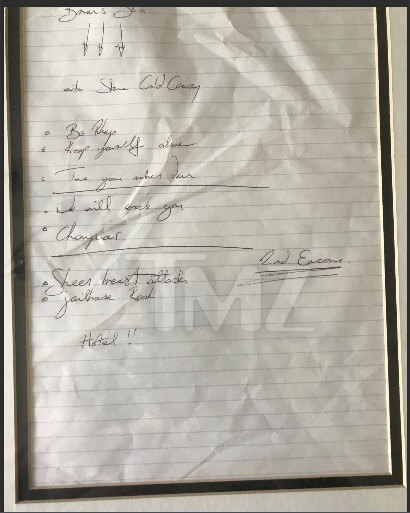 into Stone Cold Crazy
Bo Rhap
Keep yourself alive
Tie your mother down
We will rock you
Champions
2nd Encore
Sheer heart attack
jailhouse Rock
Hotel !!
TMZ